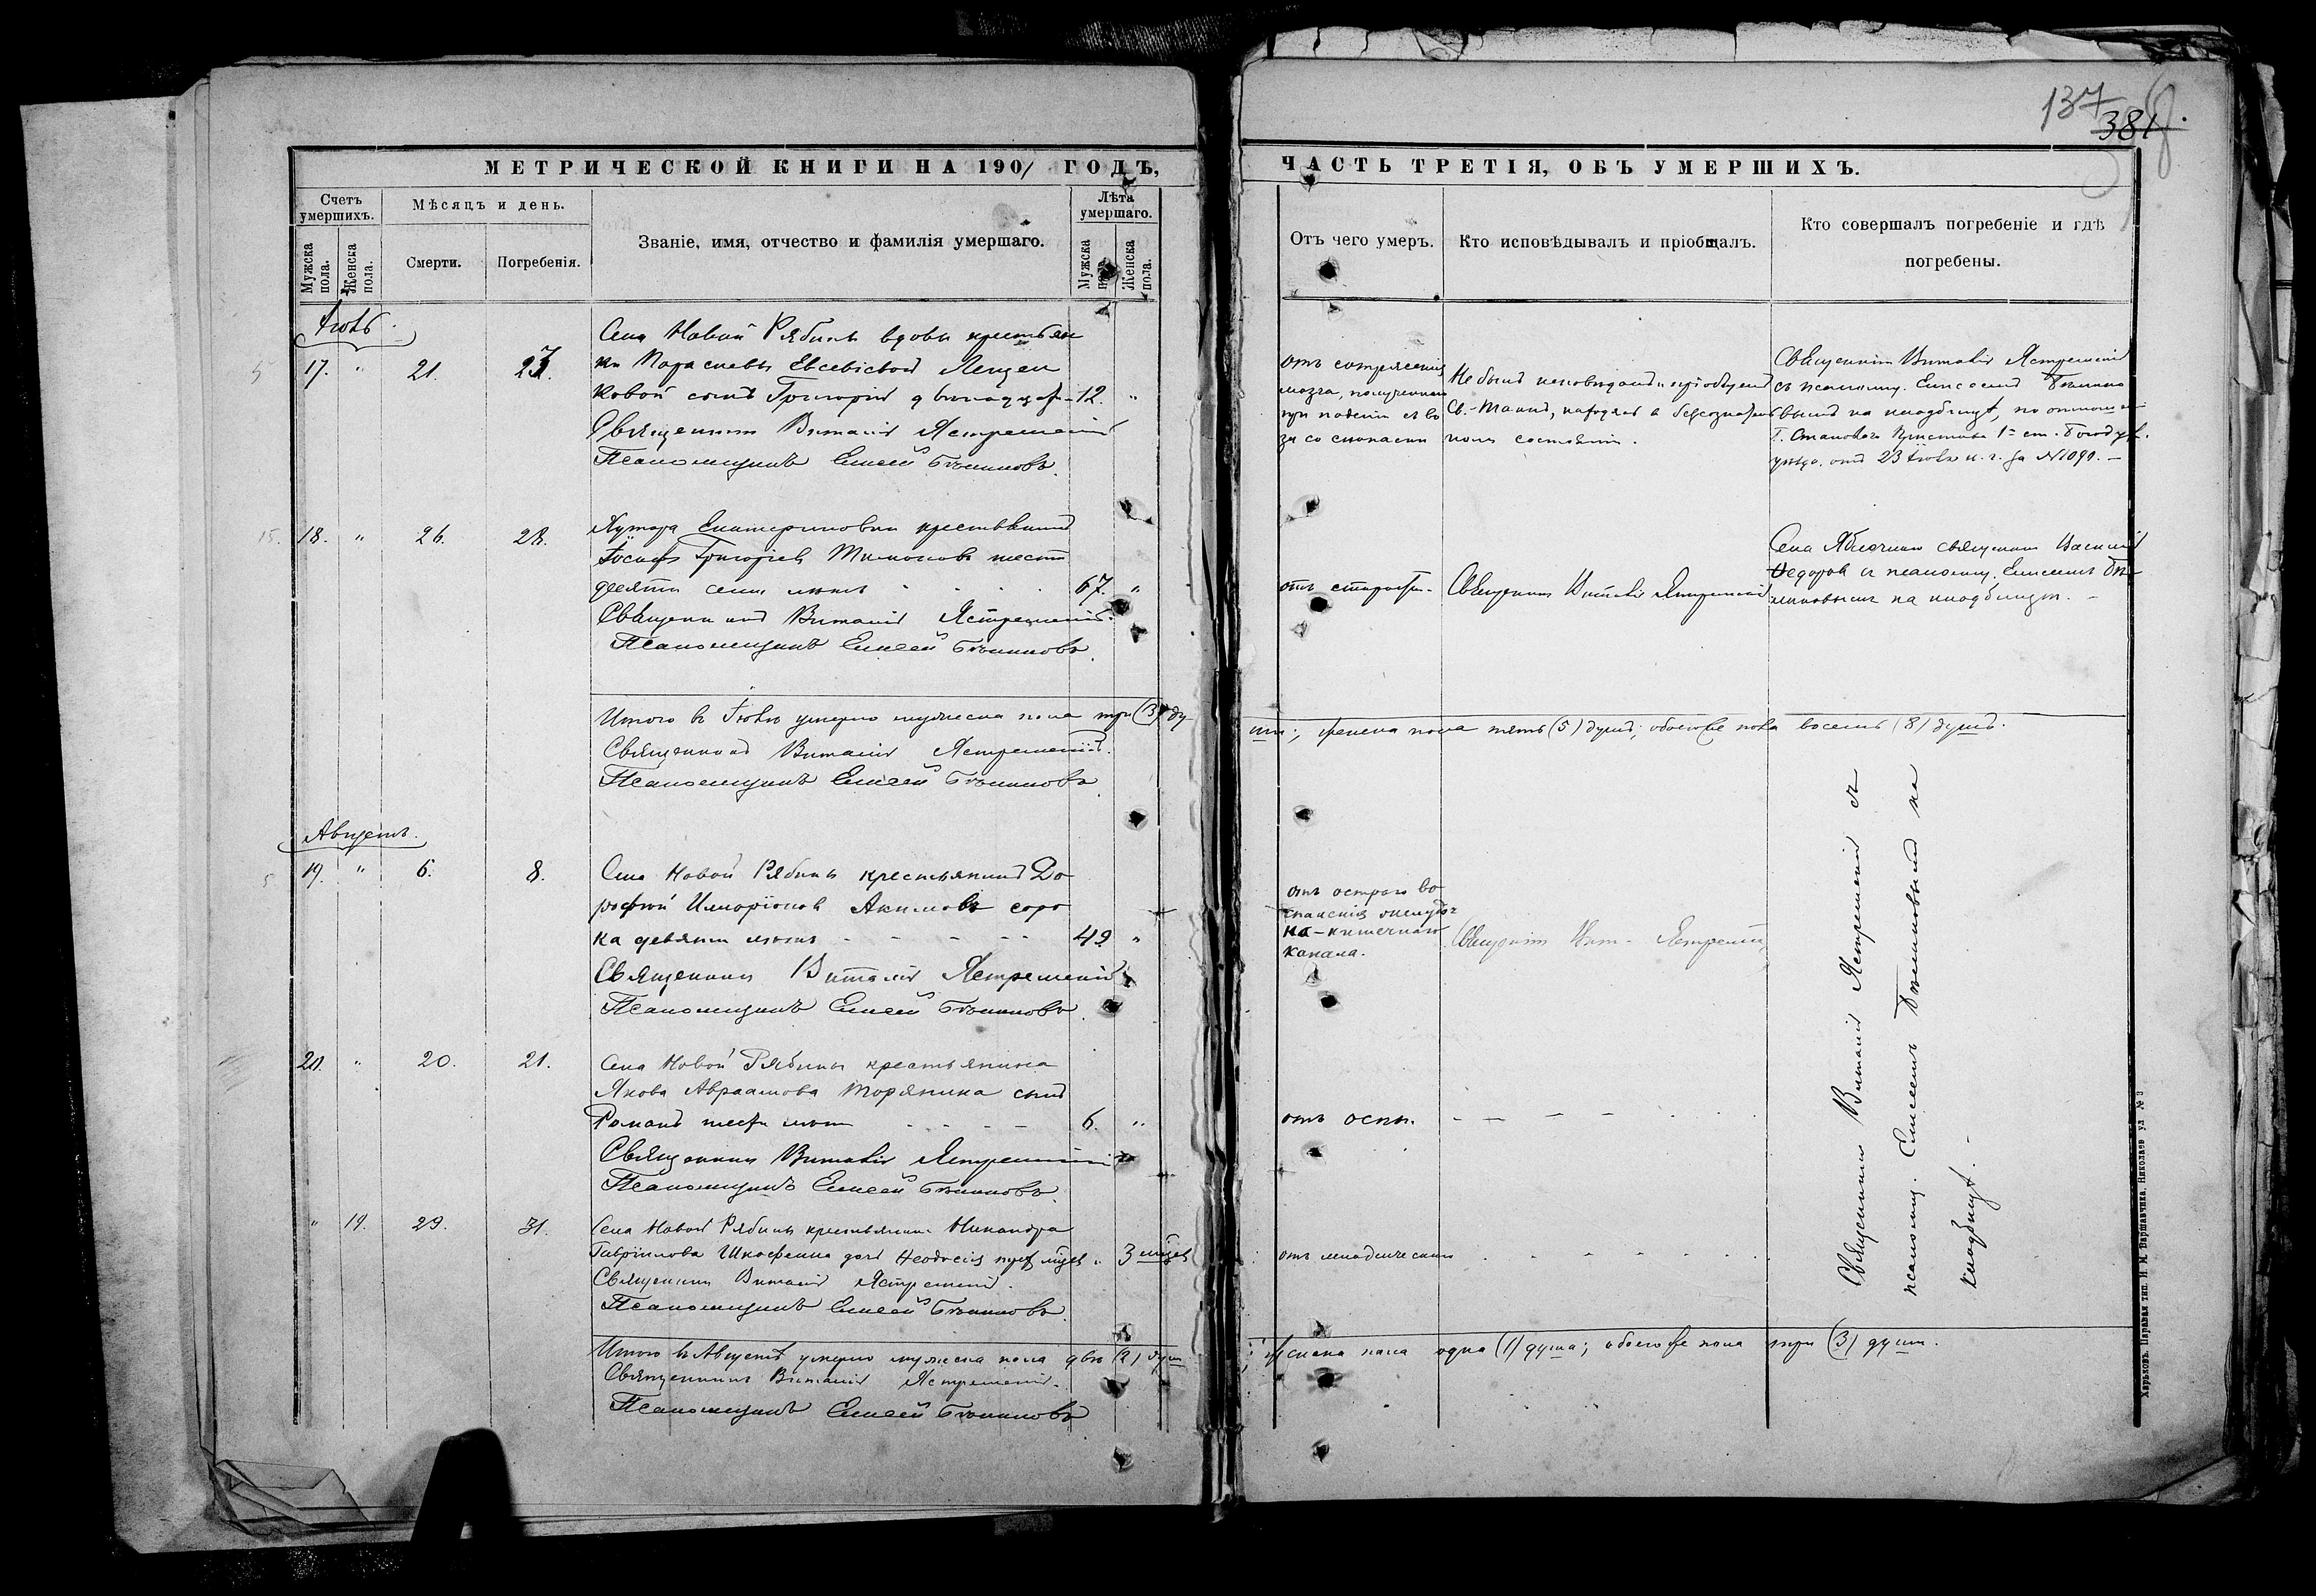 137
381
МЕТРИЧЕСКОЙ КНИГИ НА 1901 ГОДЪ,
ЧАСТЬ ТРЕТІЯ, ОБЪ УМЕРШИХЪ.
Счетъ умершихъ.
Мужска пола.
Женска пола.
Мѣсяцъ и день.
Смерти.
Погребенія.
Званіе, имя, отчество и фамилія умершаго.
Лѣта умершаго.
Мужска пола.
Женска пола.
Отъ чего умеръ.
Кто исповѣдывалъ и пріобщалъ.
Кто совершалъ погребеніе и гдѣ
погребены.
Іюль.
17. " 21. 23.
Села Новой Рябины вдовы крестьян
ки Параскевы Евсевіевой
ковой сынъ Григорій двѣнадцат. 12. "
Священникъ Виталій Ястремскій
Псаломщикъ Елисей Бѣлиновъ
отъ сотрясенія
мозга, полученнаго
при паденіи съ во
за со снопами
Не былъ исповѣданъ и пріобщенъ
Св. Таинъ, находясь въ безсознатель
номъ состояніи.
Священникъ Виталій Ястремскій
съ псаломщ. Елисеемъ Бѣлино
вымъ на кладбищѣ, по отношенію
Г. Становаго Пристава 1 ст. Богодух.
уѣзда отъ 23 Іюля н. г. за № 1090. –
18. " 26. 28.
Хутора Екатериновки крестьянинъ
Іосифъ Григорьевъ шесть
десятъ семи лѣтъ 67. "
Священникъ Виталій Ястремскій.
Псаломщикъ Елисей Бѣлиновъ.
отъ старости.
Священникъ Виталій Ястремскій
Села Яблочнаго священникъ Василій
Ѳедоровъ съ псаломщ. Елисеемъ Бѣ
линовымъ на кладбищѣ. –
Итого въ Іюлѣ умерло мужеска пола три (3) ду
ши; женска пола пять (5) душъ; обоего же пола восемь (8) душъ.
Священникъ Виталій Ястремскій.
Псаломщикъ Елисей Бѣлиновъ
Августъ.
19. " 6. 8.
Села Новой Рябины крестьянинъ До
рофей Иларіоновъ Акимовъ соро
ка девяти лѣтъ 49 "
Священникъ Виталій Ястремскій
Псаломщикъ Елисей Бѣлиновъ
отъ остраго во
спаленія желудоч
на-кишечнаго
канала.
Священникъ Вит. Ястремскій
20. " 20. 21.
Села Новой Рябины крестьянина
Якова Авраамова Торяника сынъ
Романъ шести лѣтъ 6. "
Священникъ Виталій Ястремскій
Псаломщикъ Елисей Бѣлиновъ
отъ оспы.
" 19. 29. 31.
Села Новой Рябины крестьянина Никандра
Гавріилова дочь Ѳеодосія 3
Священникъ Виталій Ястремскій.
Псаломщикъ Елисей Бѣлиновъ
отъ младенческой
Священникъ Виталій Ястремскій съ
псаломщ. Елисеемъ Бѣлиновымъ на
кладбищѣ. –
Итого въ Августѣ умерло мужеска пола двѣ (2) души
; женска пола одна (1) душа; обоего же пола три (3) души.
Священникъ Виталій Ястремскій.
Псаломщикъ Елисей Бѣлиновъ
Харьковъ. Паровая тип. И. М. Варшавчика. Николаев. ул. № 3